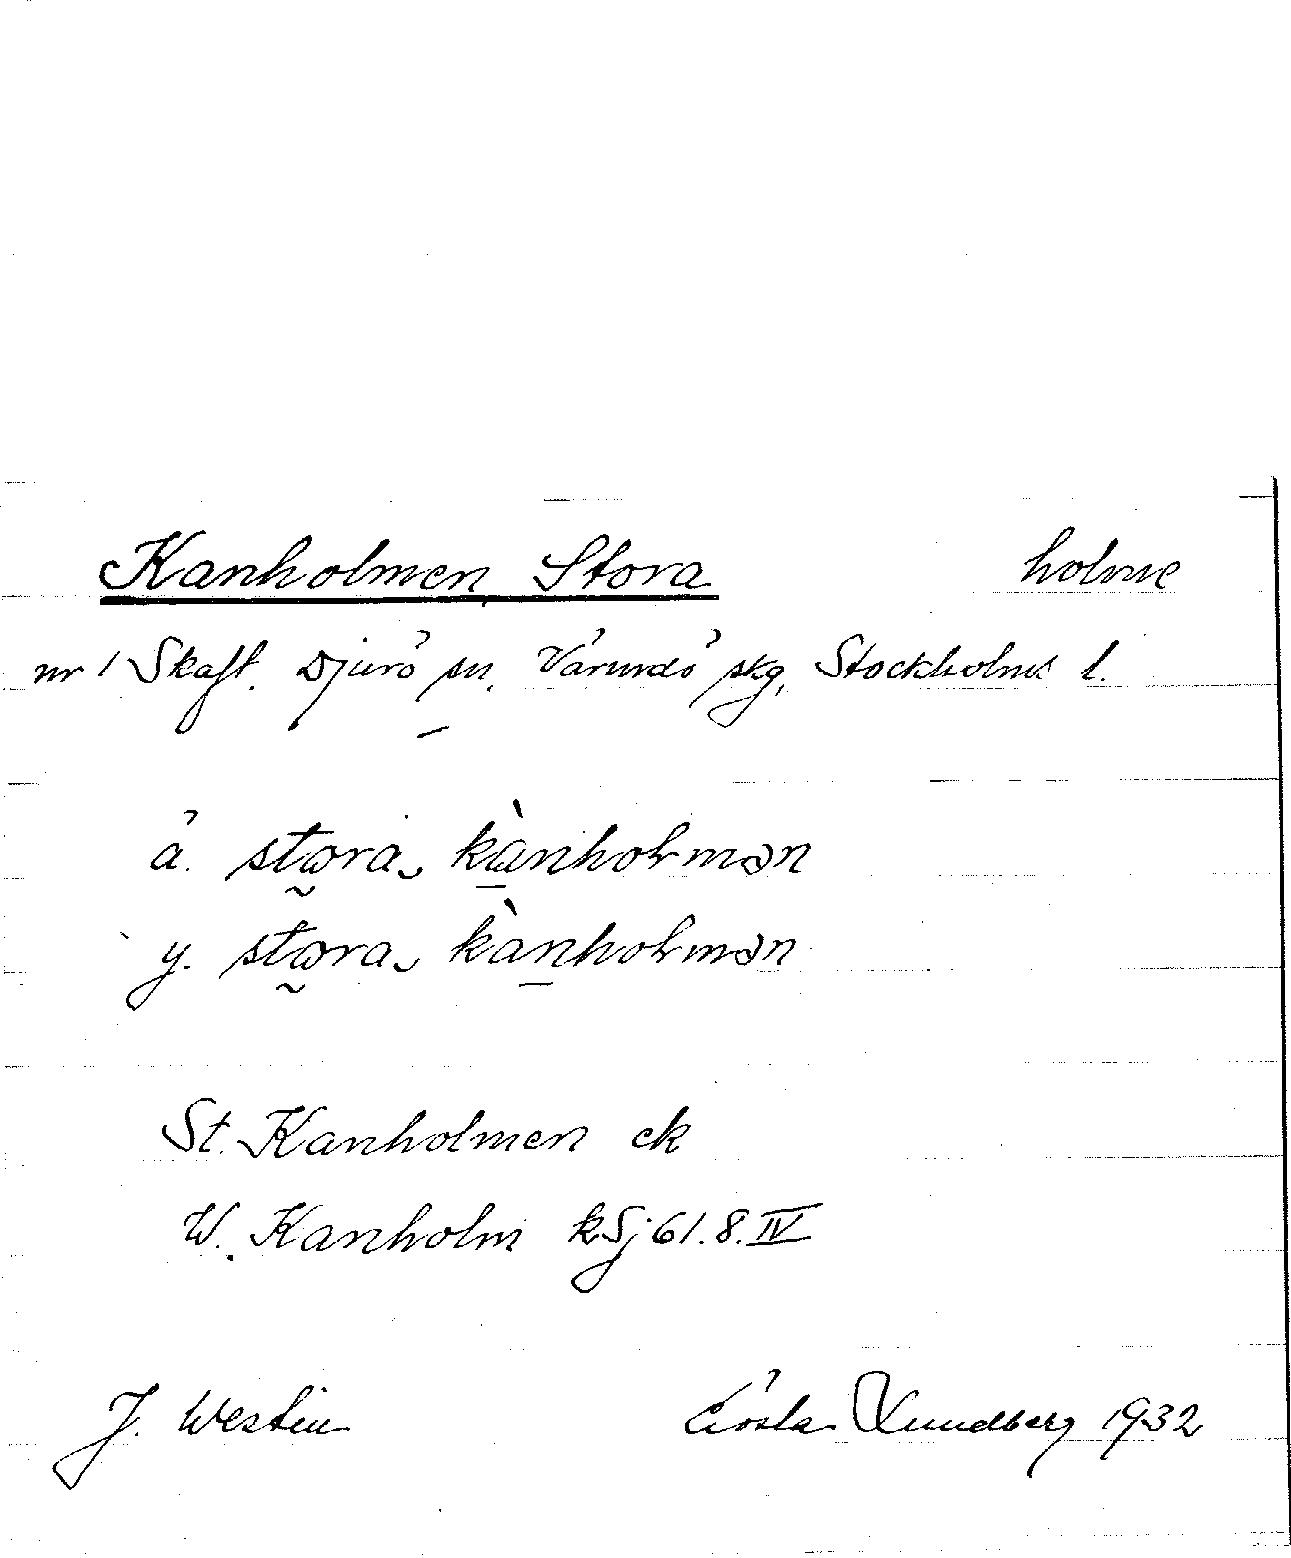 Kanholmen, Stora holme
nr 1 Skaft. Djurö sn, Värmdö skg, Stockholms l.
ä. stɷra kànholmən
y. stɷra kànholmən
St. Kanholmen ek
W. Kanholm k. Sj 61.8.IV
J. Westin Gösta Lundberg 1932